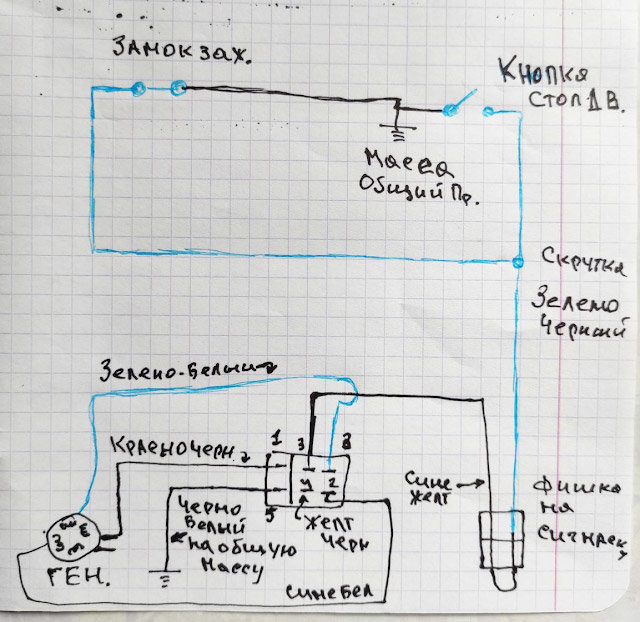 ЗАМОКЗАЖ.
КНОПКА
СТОП ДВ.
Масса
Общий Пр.
Скрутка
Зелено
Черный
Зелено-Белый
Кр
1 3 8
4 2
5
Сине
жёлт
Фишка
на
Черно
Белый
на общую
массу
Желт
Черн
З
ГЕН.
Синебел